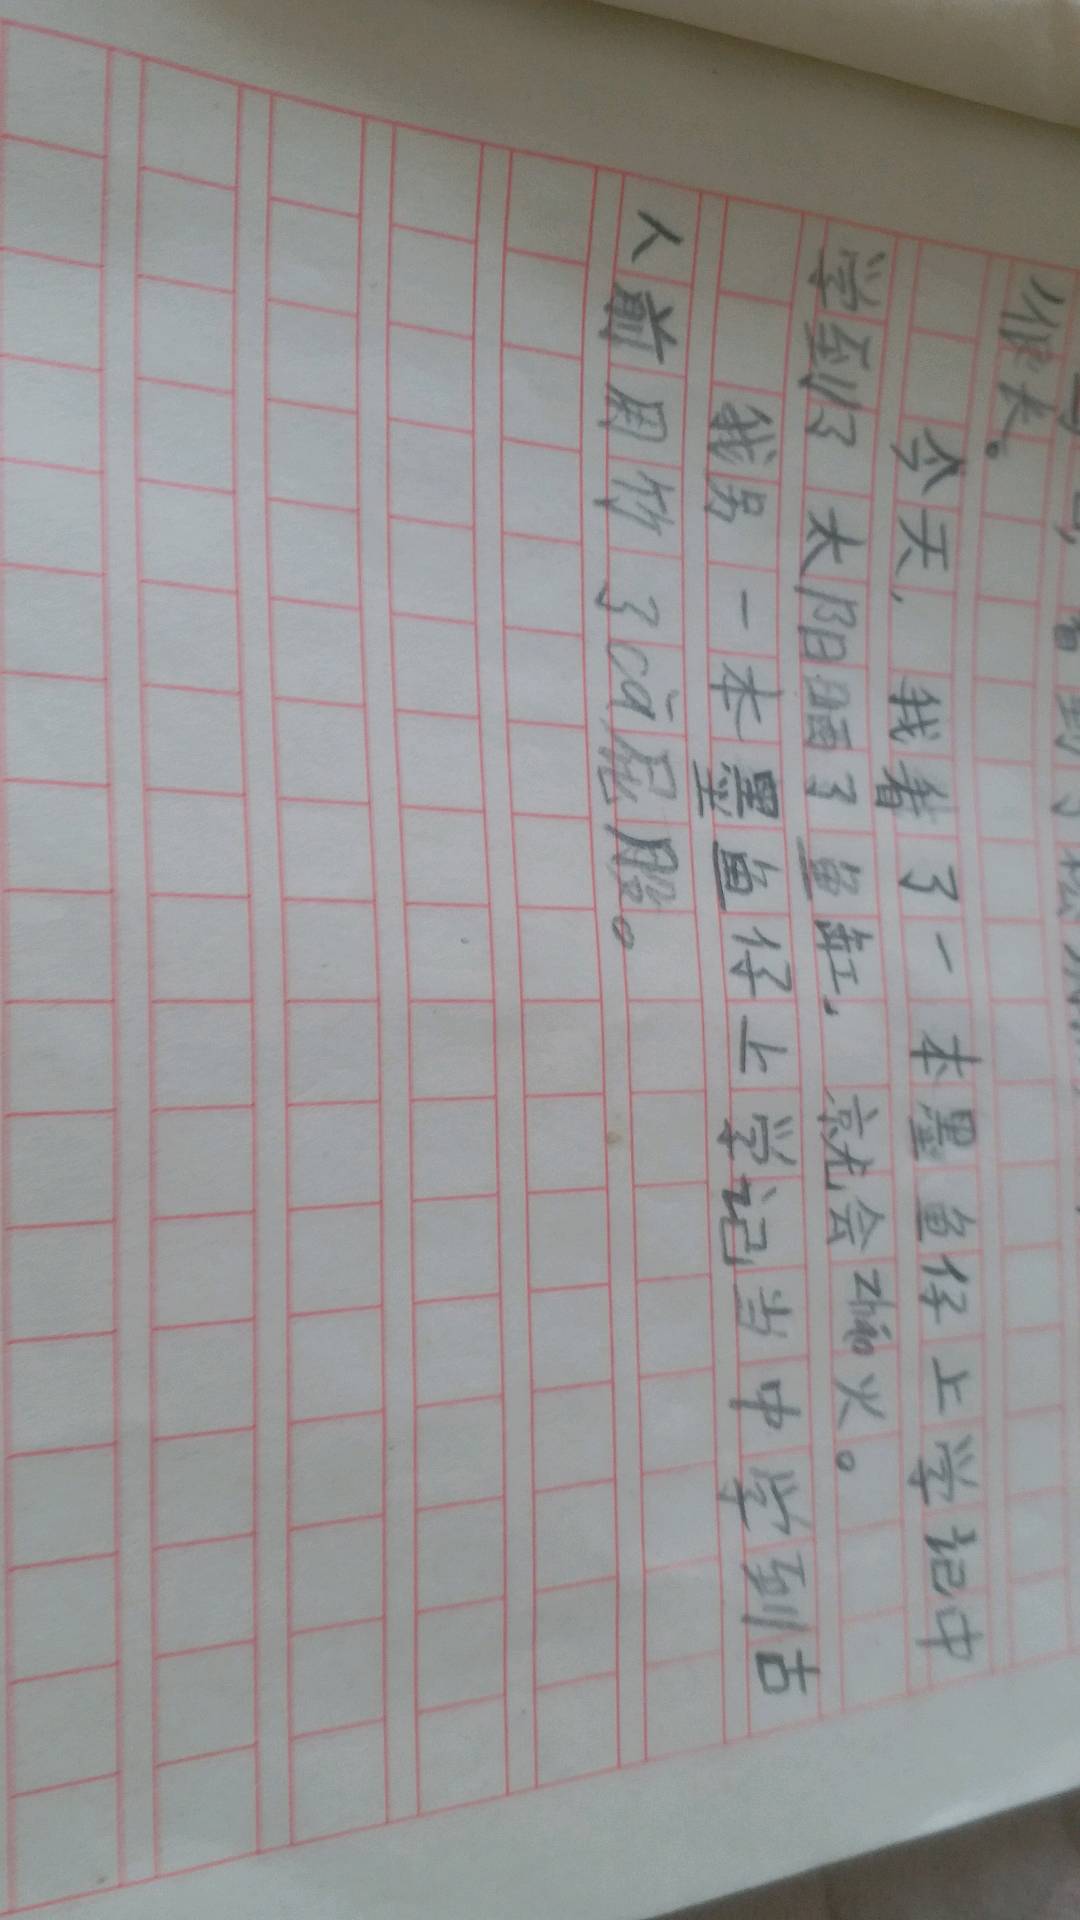 看到了松
很大。
今天，我看了一本墨鱼仔上学记中
学到了太阳晒了鱼缸，就会zháo火。
我另一本墨鱼仔上学记当中学到古
人前用竹子cā屁股。